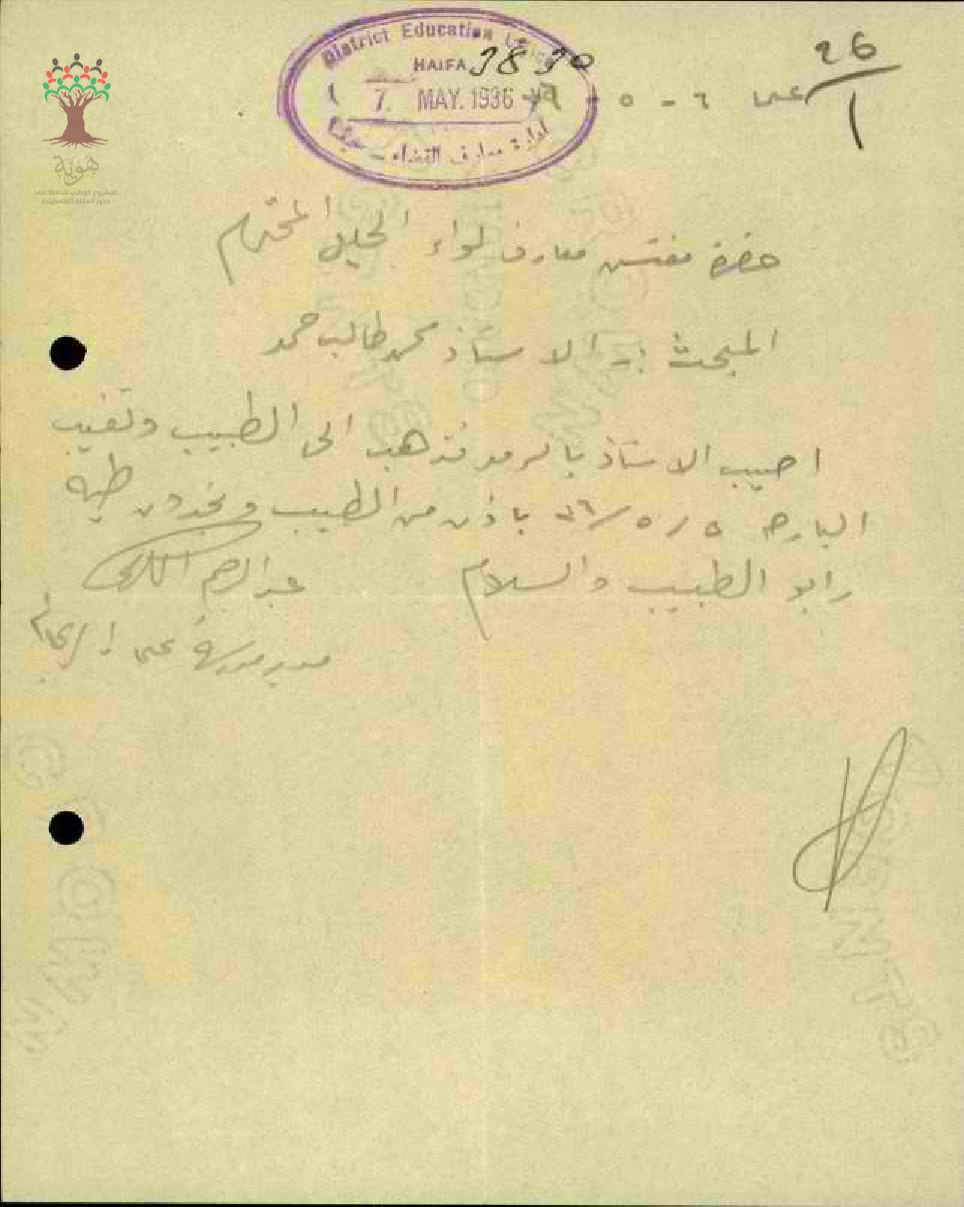 District Education Office
HAIFA 3830
7. MAY. 1936
ادارة معارف القضاء - حيفا
26
1
عكا ٦ - ٥ - ٣٦
هوية
المشروع الوطني للحفاظ على
جذور العائلة الفلسطينية
حضرة مفتش معارف لواء الجليل المحترم
المبحث :- الاستاذ محمد طالب حمد
اصيب الاستاذ بالرمد فذهب الى الطبيب وتغيب
البارحة ٥ / ٥ / ٣٦ باذن من الطبيب وتجدون طيه
الطبيب والسلام
مدير مدرسة عكا